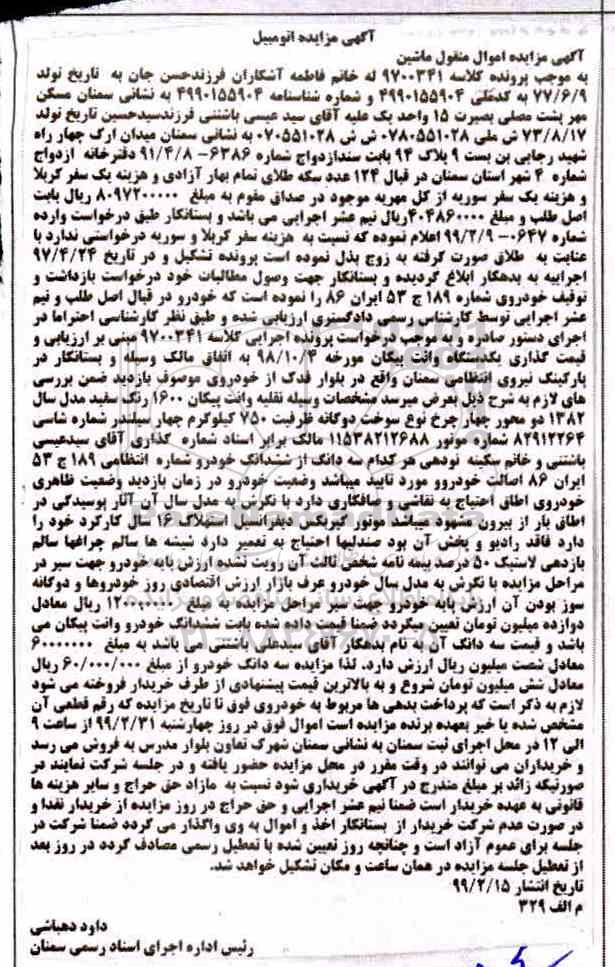 آگهی مزایده اتومبیل
آگهی مزایده اموال منقول ماشین
به موجب پرونده کلاسه ۹۷۰۰۳۴۱ له خانم فاطمه آشکاران فرزندحسن جان به تاریخ تولد
۷۷/۶/۹ به کدملی ۴۹۹۰۱۵۵۹۰۴ و شماره شناسنامه ۴۹۹۰۱۵۵۹۰۴ به نشانی سمنان مسکن
مهر پشت مصلی بصیرت ۱۵ واحد یک علیه آقای سید عیسی باشتنی فرزندسیدحسین تاریخ تولد
۷۳/۸/۱۷ ش ملی ۰۷۸۰۵۵۱۰۲۸ ش ش ۰۷۰۵۵۱۰۲۸ به نشانی سمنان میدان ارک چهار راه
شهید رجایی بن بست ۹ پلاک ۹۴ بابت سندازدواج شماره ۶۳۸۶– ۹۱/۴/۸ دفترخانه ازدواج
شماره ۴ شهر استان سمنان در قبال ۱۲۴ عدد سکه طلای تمام بهار آزادی و هزینه یک سفر کربلا
و هزینه یک سفر سوریه از کل مهریه موجود در صداق مقوم به مبلغ ۸۰۹۷۲۰۰۰۰۰ ریال بابت
اصل طلب و مبلغ ۴۰۴۸۶۰۰۰۰ریال نیم عشر اجرایی می باشد و بستانکار طبق درخواست وارده
شماره ۰۶۴۷– ۹۹/۲/۹ اعلام نموده که نسبت به هزینه سفر کربلا و سوریه درخواستی ندارد با
عنایت به طلاق صورت گرفته به زوج بذل نموده است پرونده تشکیل و در تاریخ ۹۷/۴/۲۴
اجراییه به بدهکار ابلاغ گردیده و بستانکار جهت وصول مطالبات خود درخواست بازداشت و
توقیف خودروی شماره ۱۸۹ ج ۵۳ ایران ۸۶ را نموده است که خودرو در قبال اصل طلب و نیم
عشر اجرایی توسط کارشناس رسمی دادگستری ارزیابی شده و طبق نظر کارشناسی احتراما در
اجرای دستور صادره و به موجب درخواست پرونده اجرایی کلاسه ۹۷۰۰۳۴۱ مبنی بر ارزیابی و
قیمت گذاری یکدستگاه وانت پیکان مورخه ۹۸/۱۰/۴ به اتفاق مالک وسیله و بستانکار در
پارکینگ نیروی انتظامی سمنان واقع در بلوار فدک از خودروی موصوف بازدید ضمن بررسی
های لازم به شرح ذیل بعرض میرسد مشخصات وسیله نقلیه وانت پیکان ۱۶۰۰ رنگ سفید مدل سال
۱۳۸۲ دو محور چهار چرخ نوع سوخت دوگانه ظرفیت ۷۵۰ کیلوگرم چهار سیلندر شماره شاسی
۸۲۹۱۲۲۶۴ شماره موتور ۱۱۵۳۸۲۱۲۶۸۸ مالک برابر اسناد شماره گذاری آقای سیدعیسی
باشتنی و خانم سکینه نودهی هر کدام سه دانگ از ششدانگ خودرو شماره انتظامی ۱۸۹ ج ۵۳
ایران ۸۶ اصالت خودروو مورد تایید میباشد وضعیت خودرو در زمان بازدید وضعیت ظاهری
خودروی اطاق احتیاج به نقاشی و صافکاری دارد با نگرش به مدل سال آن آثار پوسیدگی در
اطاق بار از بیرون مشهود میباشد موتور گیربکس دیفرانسیل استهلاک ۱۶ سال کارکرد خود را
دارد فاقد رادیو و پخش آن بود صندلیها احتیاج به تعمیر دارد شیشه ها سالم چراغها سالم
بازدهی لاستیک ۵۰ درصد بیمه نامه شخص ثالث آن رویت نشده ارزش پایه خودرو جهت سیر در
مراحل مزایده با نگرش به مدل سال خودرو عرف بازار ارزش اقتصادی روز خودروها و دوگانه
سوز بودن آن ارزش پایه خودرو جهت سیر مراحل مزایده به مبلغ ۱۲۰۰۰۰۰۰۰ ریال معادل
دوازده میلیون تومان تعیین میگردد ضمنا قیمت داده شده بابت ششدانگ خودرو وانت پیکان می
باشد و قیمت سه دانگ آن به نام بدهکار آقای سیدعلی باشتنی می باشد به مبلغ ۶۰۰۰۰۰۰۰
معادل شصت میلیون ریال ارزش دارد. لذا مزایده سه دانک خودرو از مبلغ ۶۰/۰۰۰/۰۰۰ ریال
معادل شش میلیون تومان شروع و به بالاترین قیمت پیشنهادی از طرف خریدار فروخته می شود
لازم به ذکر است که پرداخت بدهی ها مربوط به خودروی فوق تا تاریخ مزایده که رقم قطعی آن
مشخص شده یا خیر بعهده برنده مزایده است اموال فوق در روز چهارشنبه ۹۹/۲/۳۱ از ساعت ۹
الی ۱۲ در محل اجرای ثبت سمنان به نشانی سمنان شهرک تعاون بلوار مدرس به فروش می رسد
و خریداران می توانند در وقت مقرر در محل مزایده حضور یافته و در جلسه شرکت نمایند در
صورتیکه زائد بر مبلغ مندرج در آگهی خریداری شود نسبت به مازاد حق حراج و سایر هزینه ها
قانونی به عهده خریدار است ضمنا نیم عشر اجرایی و حق حراج در روز مزایده از خریدار نقدا و
در صورت عدم شرکت خریدار از بستانکار اخذ و اموال به وی واگذار می گردد ضمنا شرکت در
جلسه برای عموم آزاد است و چنانچه روز تعیین شده با تعطیل رسمی مصادف گردد در روز بعد
از تعطیل جلسه مزایده در همان ساعت و مکان تشکیل خواهد شد.
تاریخ انتشار ۹۹/۲/۱۵
م الف ۳۲۹
داود دهباشی
رئیس اداره اجرای اسناد رسمی سمنان